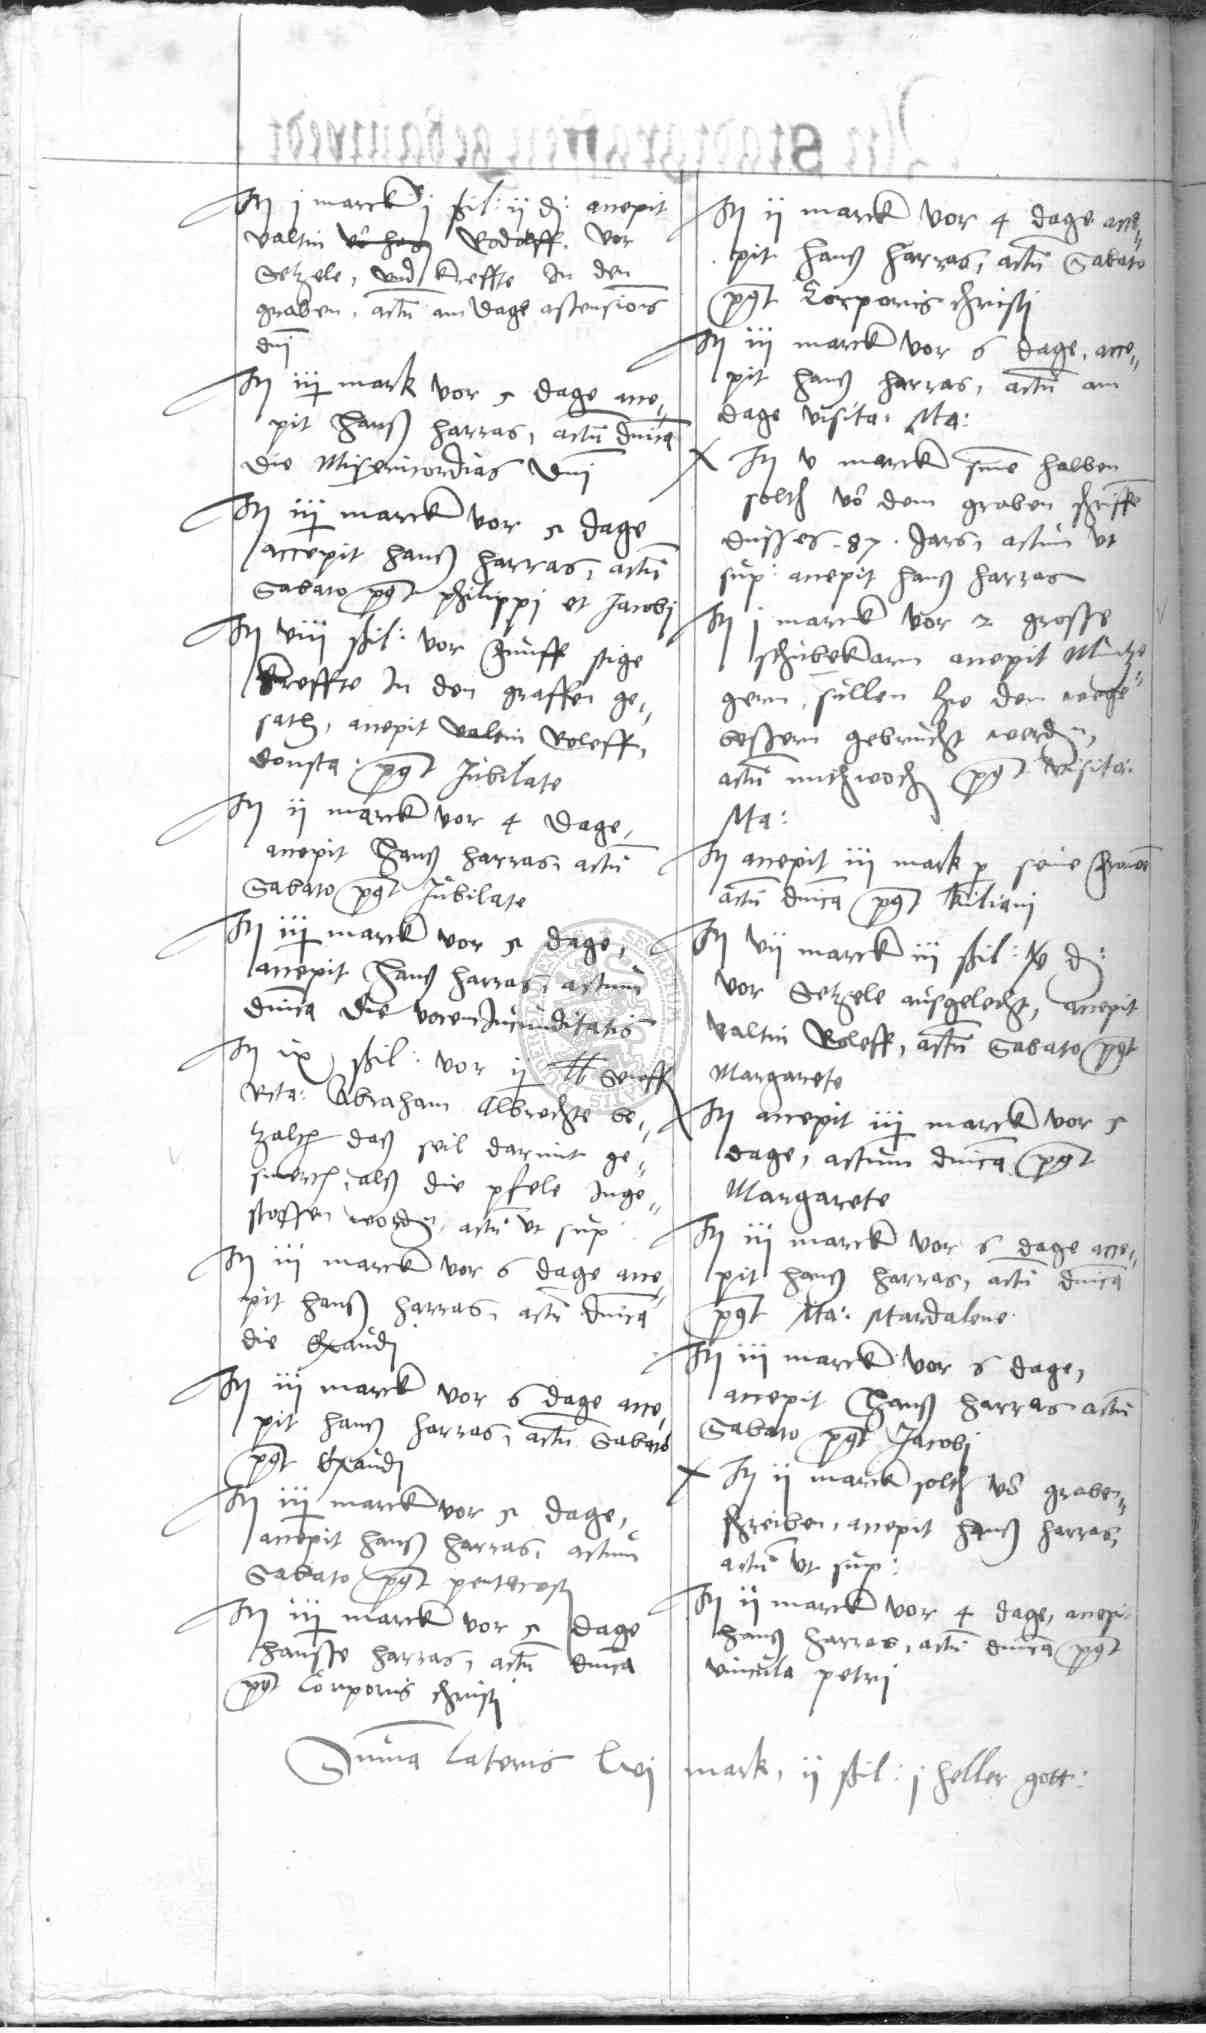 It j marck j ßil: ij d: accepit
valtin Rodolff. vor
Setzele, vnd kreffte in den
graben, actu am dage ascensionis
dni
It iij mark vor 5 dage acce„
pit Hanß Harras, actu dnica
die Misericordias Dni
It iij marck vor 5 dage
accepit Hanß Harras, actu
Sabato pgt philippi et Jacobi
It viij ßil: vor fünff stige
kreffte in den graffen ge„
satz, accepit valtin Roleff,
donsta: pgt Jubilate
It ij marck vor 4 dage,
accepit Hanß Harras, actu
Sabato pgt Jubilate
It iij marck vor 5 dage,
accepit Hanß Harras, actum
dnica die vocem Jucunditatis
It ix ßil: vor ij lb
Abraham Albrechte be„
zalt daß seil darmit ge„
smert, alß die pfele inge„
stossen wordn, actu ut sup
It iij marck vor 6 dage acce„
pit Hanß Harras, actu dnica
die Exaudi
It iij marck vor 6 dage acce„
pit Hanß Harras, actu Sabato
pgt Exaudi
It iij marck vor 5 dage,
accepit Hanß Harras, actum
Sabato pgt pentecost
It iij marck vor 5 dage
Hansse Harras, actu dnica
pgt Corporis Christi
It ij marck vor 4 dage acce„
pit Hanß Harras, actu Sabato
pgt Corporis Christi
It iij marck vor 6 dage, acce„
pit Hanß Harras, actu am
dage visita: Ma:
It v marck sine halben
solth vor dem graben schriffe
dusses .87. Jars, actum ut
sup: accepit Hanß Harras
It j marck vor 2 grosse
schubekarn accepit Müntze„
gern, sullen zu den wege
bessern gebrucht werdn,
actu mithwoch pgt visita:
Ma:
It accepit iij mark p sine
actu dnica pgt Kiliani
It vij marck iij ßil: d:
vor Setzele ausgelecht, accepit
valtin Roleff, actu Sabato pgt
Margarete
It accepit iij marck vor 5
dage, actum dnica pgt
Margarete
It iij marck vor 6 dage acce„
pit Hanß Harras, actu dnica
pgt Ma: Mardalene
It iij marck vor 6 dage,
accepit Hanß Harras actu
Sabato pgt Jacobi
It ij marck solth vor graben„
schreiben, accepit Hanß Harras,
actu ut sup:
It ij marck vor 4 dage, accepit
Hanß Harras, actu dnica pgt
vincula petri
Suma lateris lvj mark, ij ßil: j heller gott: